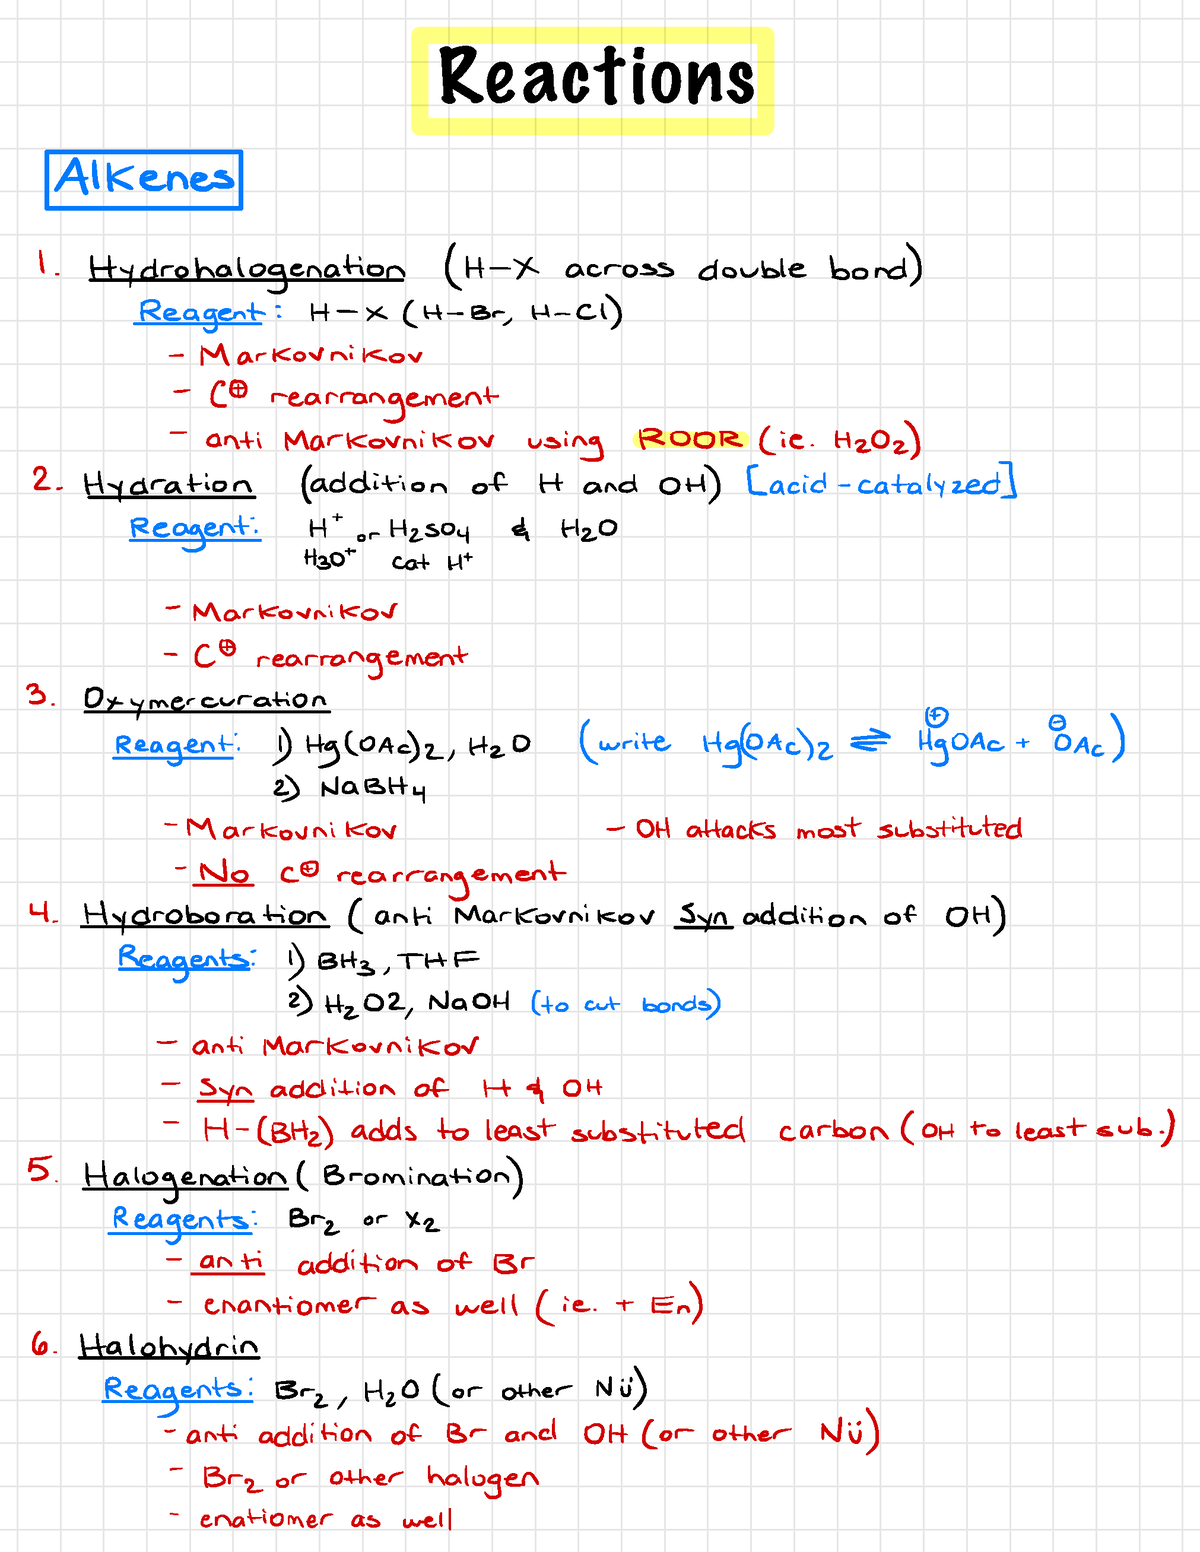 Reactions
Alkenes
1. Hydrohalogenation (H-X across double bond)
Reagent: H-X (H-Br, H-Cl)
- Markovnikov
- C⊕ rearrangement
- anti Markovnikov using ROOR (ie. H2O2)
2. Hydration (addition of H and OH) [acid-catalyzed]
Reagent: H+ or H2SO4 & H2O
H3O+ cat H+
- Markovnikov
- C⊕ rearrangement
3. Oxymercuration
Reagent: 1) Hg(OAc)2, H2O (write Hg(OAc)2 ⇌ ⊕HgOAc + ⊖OAc)
2) NaBH4
- Markovnikov - OH attacks most substituted
- No C⊕ rearrangement
4. Hydroboration (anti Markovnikov Syn addition of OH)
Reagents: 1) BH3, THF
2) H2O2, NaOH (to cut bonds)
- anti Markovnikov
- Syn addition of H & OH
- H-(BH2) adds to least substituted carbon (OH to least sub.)
5. Halogenation (Bromination)
Reagents: Br2 or X2
- anti addition of Br
- enantiomer as well (ie. + En)
6. Halohydrin
Reagents: Br2, H2O (or other Nü)
- anti addition of Br and OH (or other Nü)
- Br2 or other halogen
- enatiomer as well